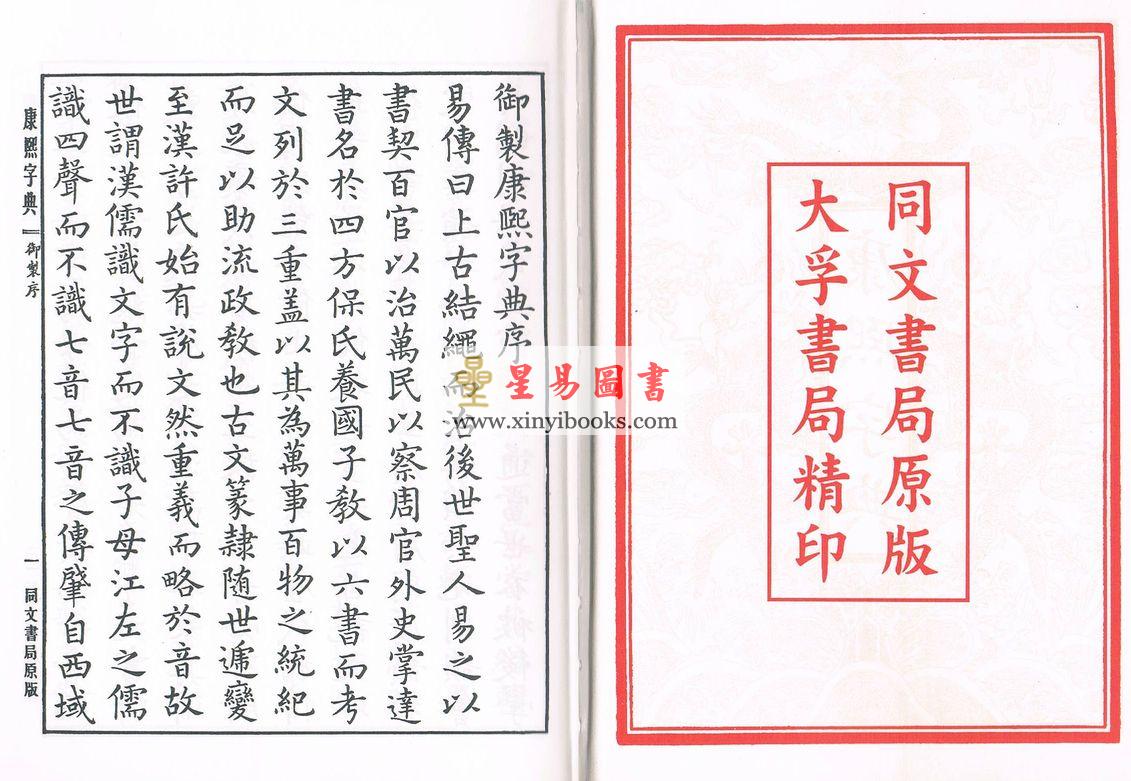 同文書局原版
大孚書局精印
御製康熙字典序
易傳曰上古結繩而治後世聖人易之以
書契百官以治萬民以察周官外史掌達
書名於四方保氏養國子教以六書而考
文列於三重盖以其為萬事百物之統紀
而足以助流政教也古文篆隸随世遞變
至漢許氏始有說文然重義而略於音故
世謂漢儒識文字而不識子母江左之儒
識四聲而不識七音七音之傳肇自西域
康熙字典
御製序
一
同文書局原版
星易圖書
www.xinyibooks.com